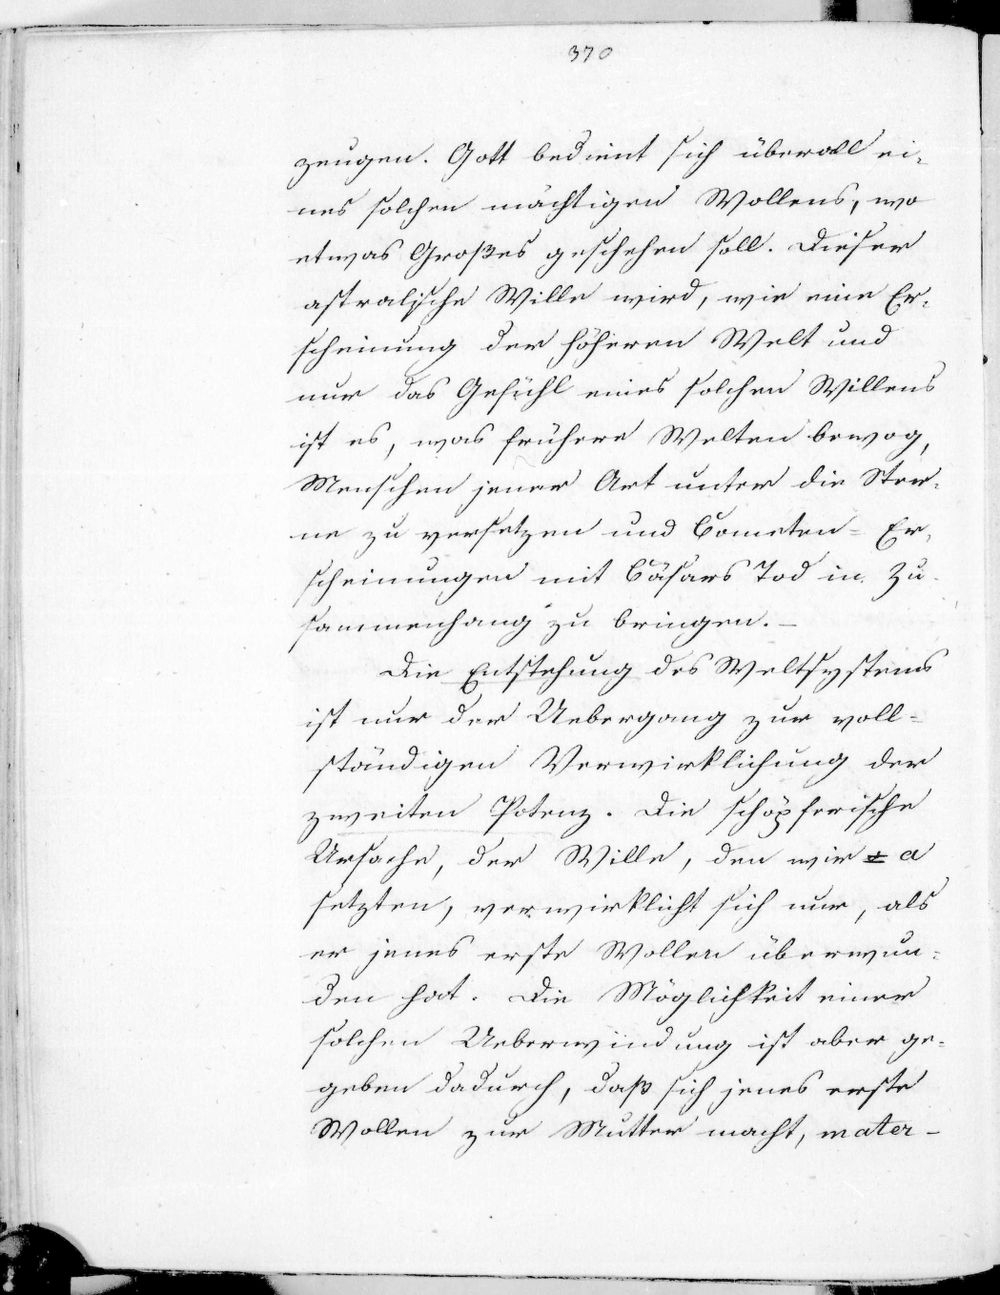 370
zeugen. Gott bedient sich überall ei-
nes solchen mächtigen Wollens, wo
etwas Großes geschehen soll. Dieser
astralische Wille wird, wie eine Er-
scheinung der höheren Welt und
nur das Gefühl eines solchen Willens
ist es, was frühere Welten bewog,
Menschen jener Art unter die Ster-
ne zu versetzen und Cometen-Er-
scheinungen mit Cäsars Tod in Zu-
sammenhang zu bringen. –
Die Entstehung des Weltsystems
ist nur der Uebergang zur voll-
ständigen Verwirklichung der
zweiten Potenz. Die schöpferische
Ursache, der Wille, den wir ± a
setzten, verwirklicht sich nur, als
er jenes erste Wollen überwun-
den hat. Die Möglichkeit einer
solchen Ueberwindung ist aber ge-
geben dadurch, daß sich jenes erste
Wollen zur Mutter macht, mater –